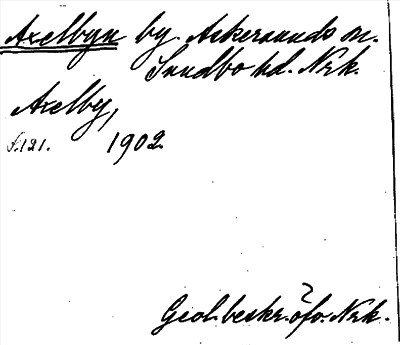 Axelbyn by. Askersunds sn.
Sundbo hd. Nrk.
Axelby,
s. 121. 1902
Geol. beskr. öfv. Nrk.